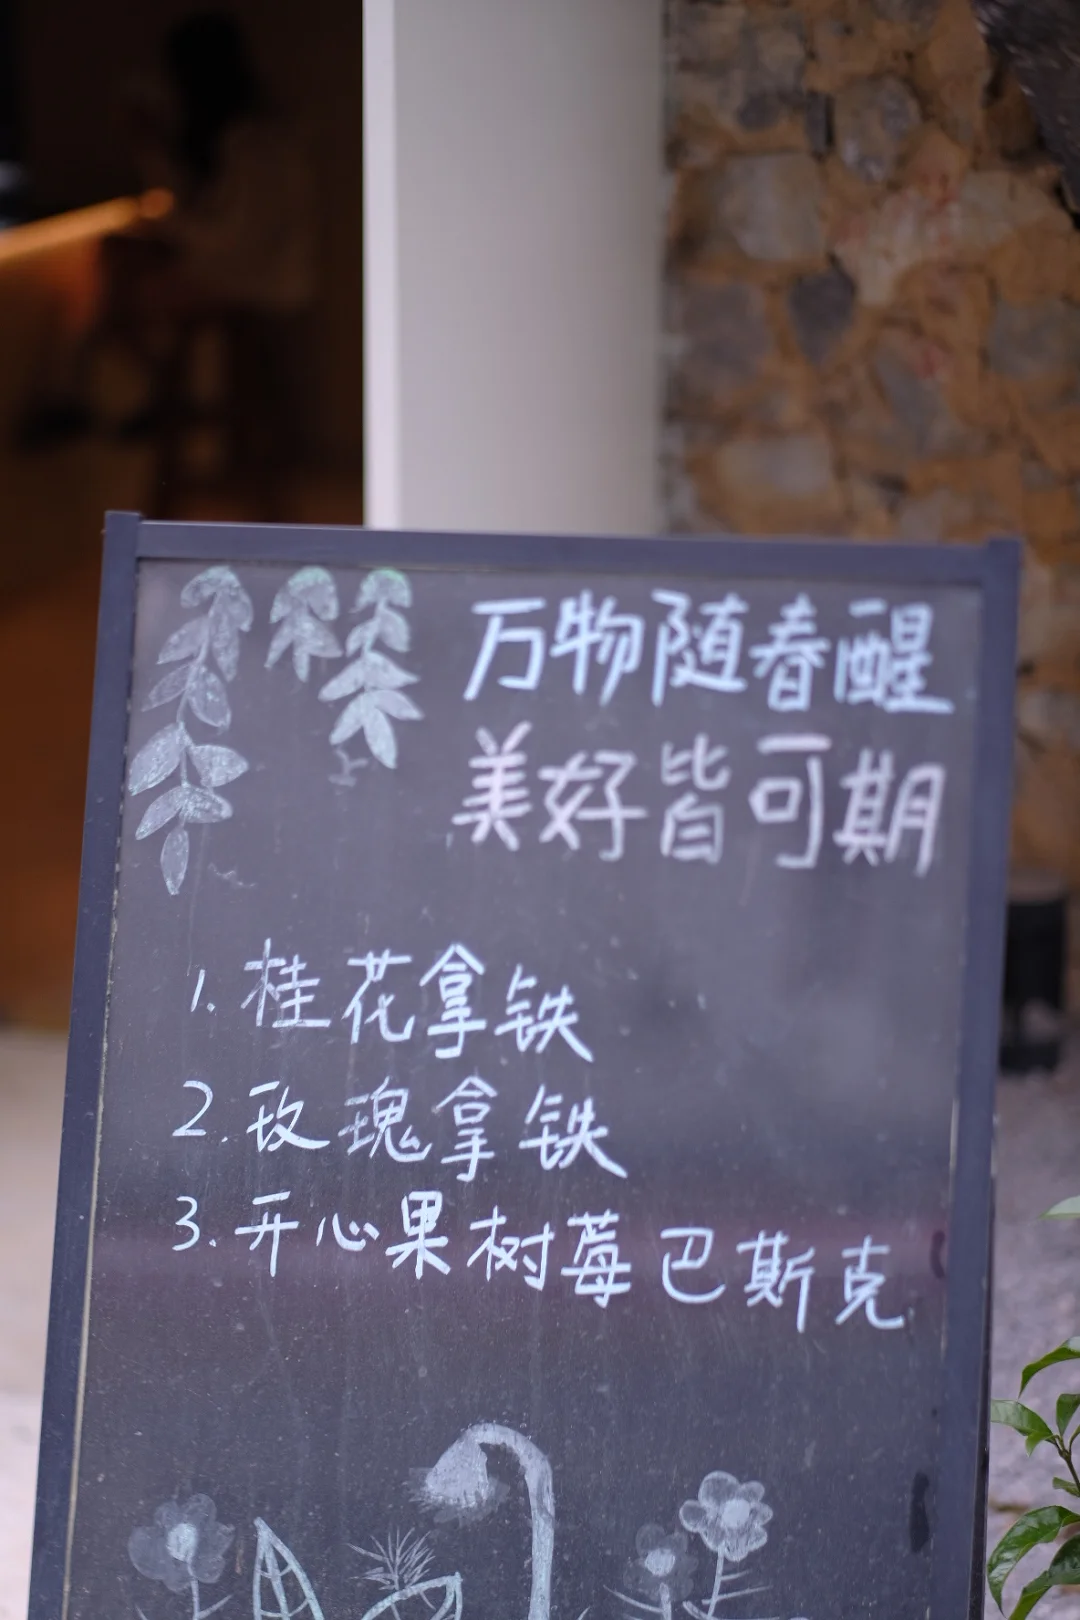 万物随春醒
美好皆可期
1. 桂花拿铁
2. 玫瑰拿铁
3. 开心果树莓巴斯克